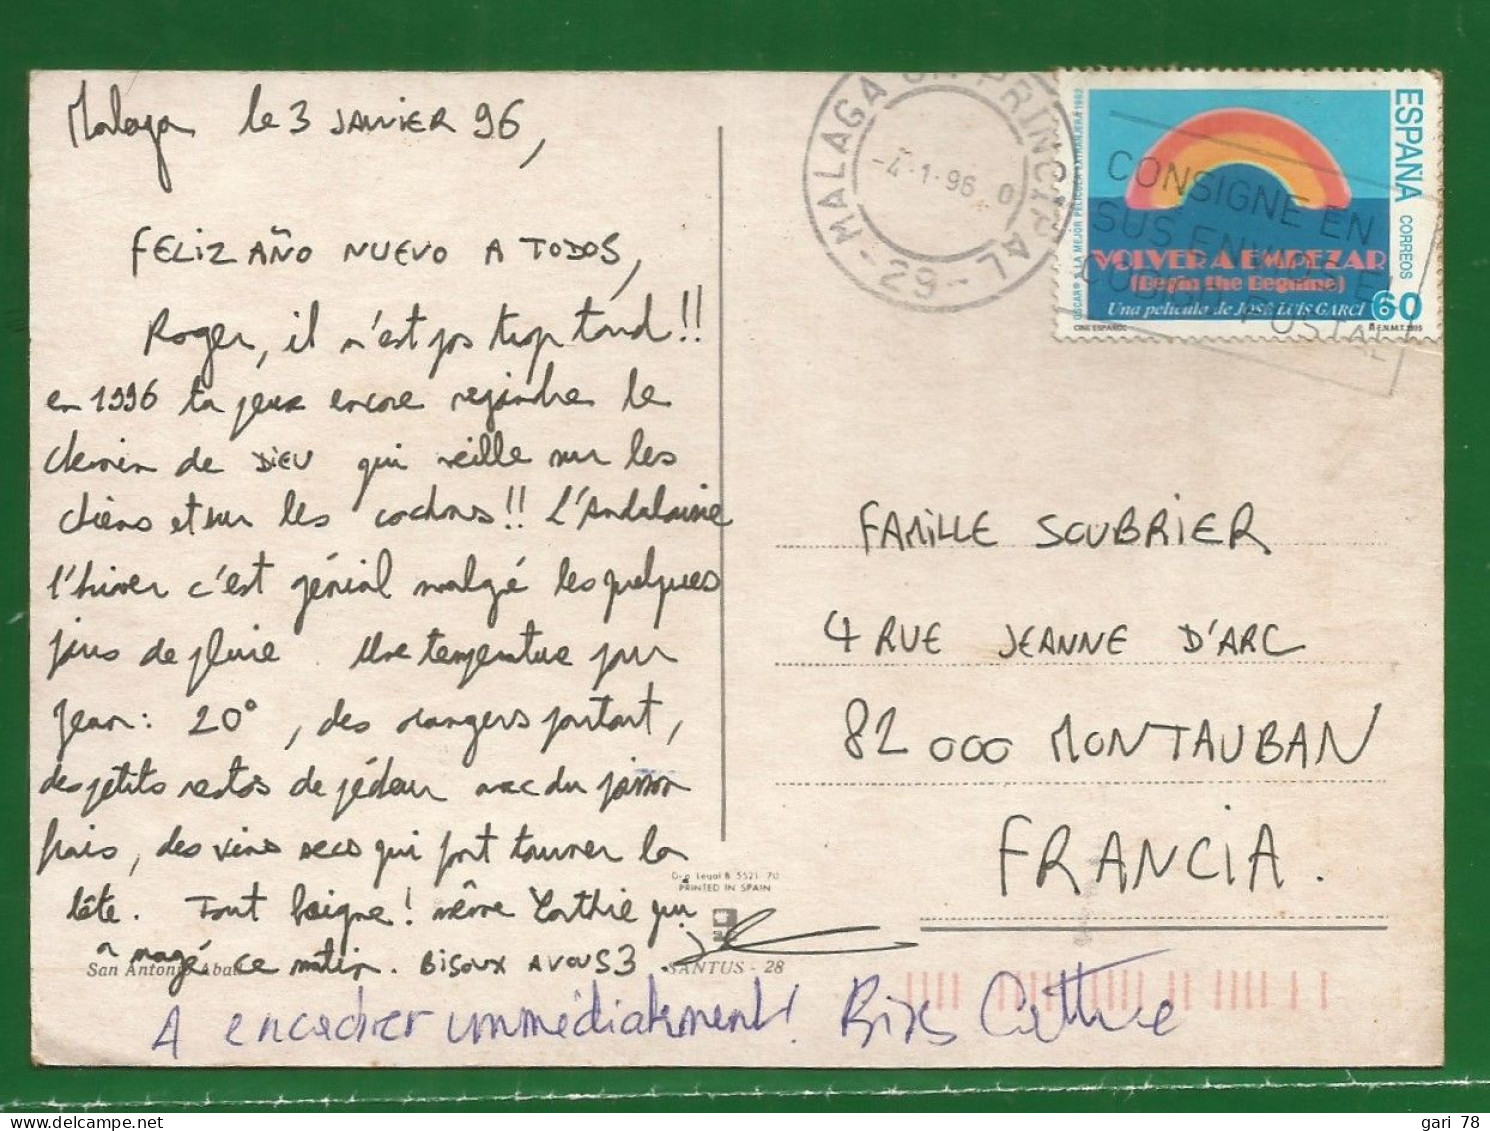 Malaga le 3 JANVIER 96,
FELIZ AÑO NUEVO A TODOS,
Roger, il n'est pas trop tard!!
en 1996 tu peux encore rejoindre le
chemin de DIEU qui veille sur les
chiens et sur les cochons!! L'Andalousie
l'hiver c'est génial malgré les quelques
jours de pluie. Une température par
jour: 20°, des orangers partout,
des petits restos de pêcheur avec du poisson
frais, des vins secs qui font tourner la
tête. Tout baigne! même Cathie qui
a nagé ce matin. BISOUX A VOUS 3.
A encadrer immédiatement! Bises Cathie
San Antonio Abad
SANTUS - 28
Dep. Legal B 5521-70
PRINTED IN SPAIN
MALAGA PRINCIPAL
-4-1-96
-29-
CONSIGNE EN
SUS ENVIOS EL
CODIGO POSTAL
ESPAÑA CORREOS
OSCAR® A LA MEJOR PELICULA EXTRANJERA 1982
VOLVER A EMPEZAR
(Begin the Beguine)
Una película de JOSÉ LUIS GARCI 60
CINE ESPAÑOL F.N.M.T. 1995
FAMILLE SOUBRIER
4 RUE JEANNE D'ARC
82 000 MONTAUBAN
FRANCIA.
gari 78